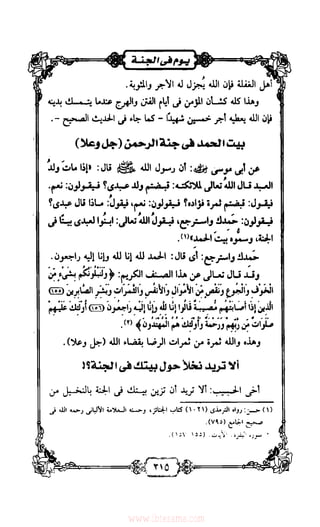 يوم فى الجنة
أهل الغفلة فإن الله يُجزل له الأجر والمثوبة.
وهذا كله كشأن المؤمن فى أيام الفتن والهرج عندما يتمسك بدينه
فإن الله يعطيه أجر خمسين شهيدًا - كما جاء فى الحديث الصحيح -.
بيت الحمد فى جنة الرحمن (جل وعلا)
عن أبى موسى رضي الله عنه: أن رسول الله ﷺ قال: «إذا مات ولدُ
العبد قال اللهُ تعالى لملائكته: قبضتم ولد عبدى؟ فيقولون: نعم.
فيقول: قبضتم ثمرة فؤاده؟ فيقولون: نعم، فيقول: ماذا قال عبدى؟
فيقولون: حمدك واسترجع، فيقولُ اللهُ تعالى: ابنوا لعبدى بيتًا فى
الجنة، وسمُّوه بيتَ الحمد»(١).
حمدك واسترجع: أى قال: الحمد لله إنا لله وإنا إليه راجعون.
وقد قال تعالى عن هذا الصنف الكريم: ﴿وَلَنَبْلُوَنَّكُم بِشَيْءٍ مِّنَ
الْخَوْفِ وَالْجُوعِ وَنَقْصٍ مِّنَ الْأَمْوَالِ وَالْأَنفُسِ وَالثَّمَرَاتِ وَبَشِّرِ الصَّابِرِينَ (١٥٥)
الَّذِينَ إِذَا أَصَابَتْهُم مُّصِيبَةٌ قَالُوا إِنَّا لِلَّهِ وَإِنَّا إِلَيْهِ رَاجِعُونَ (١٥٦) أُولَٰئِكَ عَلَيْهِمْ
صَلَوَاتٌ مِّن رَّبِّهِمْ وَرَحْمَةٌ وَأُولَٰئِكَ هُمُ الْمُهْتَدُونَ﴾(٢).
وهذه والله ثمرة من ثمرات الرضا بقضاء الله (جل وعلا).
ألا تريد نخلاً حول بيتك فى الجنة؟!
أخى الحبيب: ألا تريد أن تزين بيتك فى الجنة بالنخيل من
(١) حسن: رواه الترمذى (١٠٢١) كتاب الجنائز، وحسنه العلامة الألبانى رحمه الله فى
صحيح الجامع (٧٩٥).
(٢) سورة البقرة: الآيات: (١٥٥-١٥٧).
٣١٥